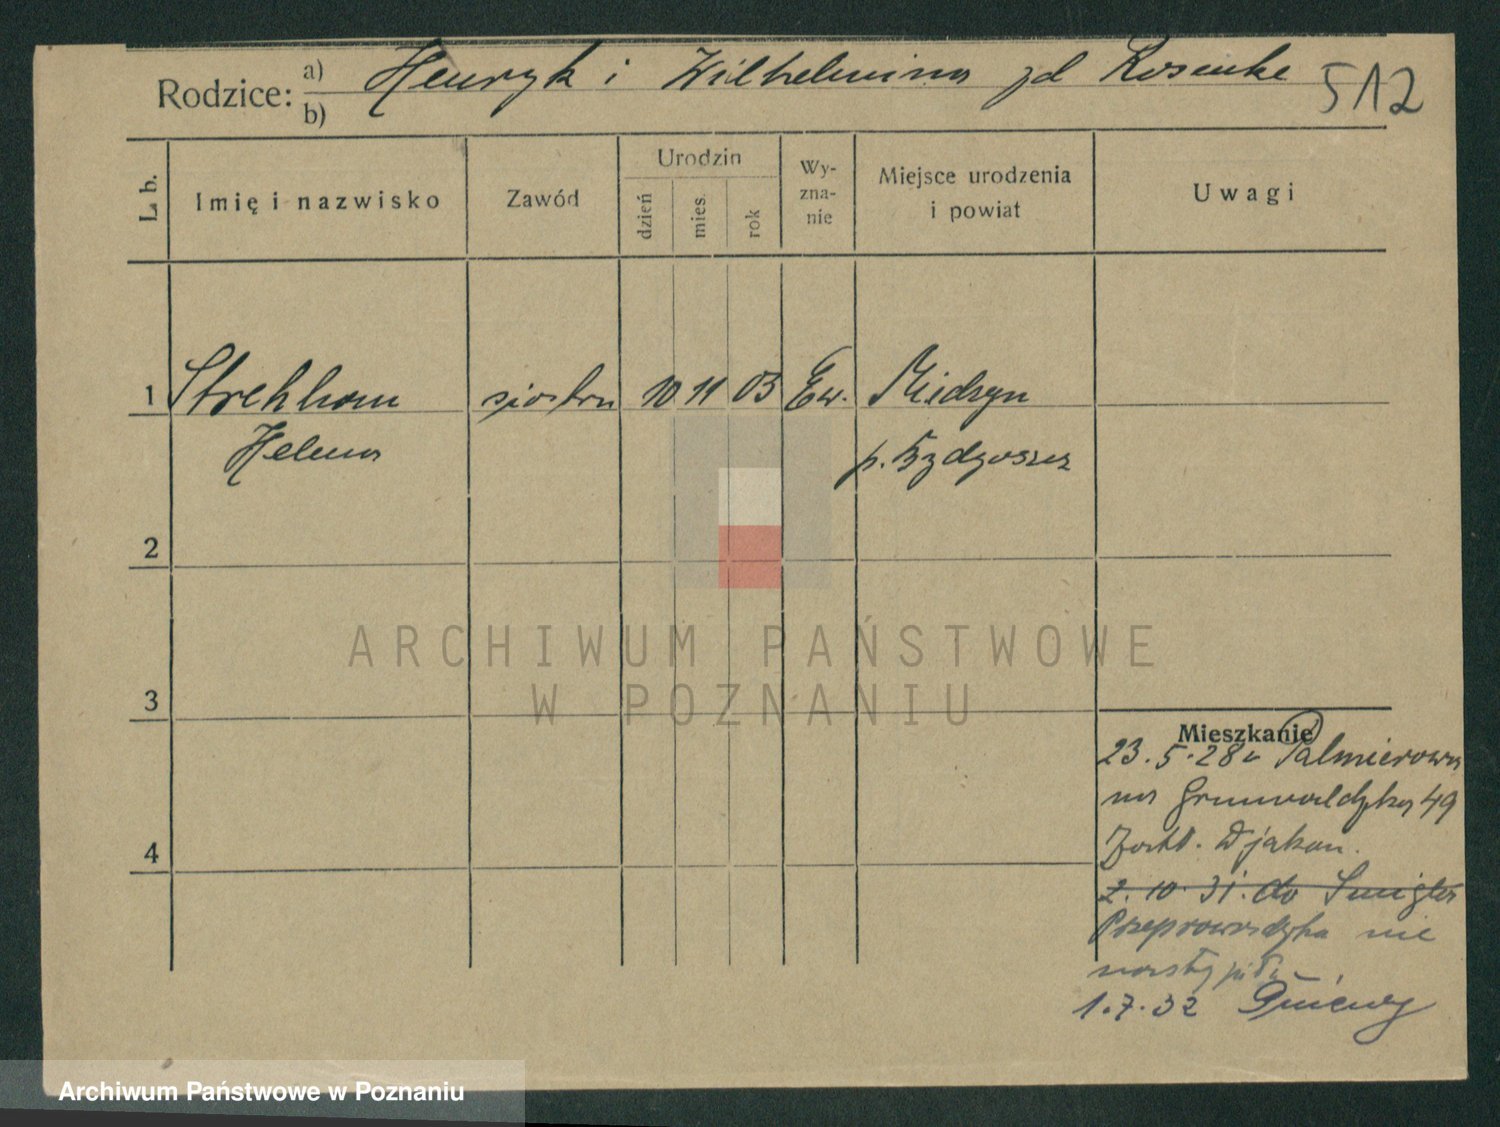 Rodzice: a) Henryk i Wilhelmina zd Rosenke 512
b)
L. b. Imię i nazwisko Zawód Urodzin dzień mies. rok Wy-zna-nie Miejsce urodzenia i powiat Uwagi
1 Strehhom siostra 10 11 03 Ew. Miedzyn
Helena p. Bydgoszcz
2
ARCHIWUM PAŃSTWOWE
W POZNANIU
3
Mieszkanie
23. 5. 28 Palmierowa
na Grunwaldzka 49
Djakon.
4
2. 10. 31. do Smigla
Przeprowadzka nie
nastąpiła
1. 7. 32 Gniewy
Archiwum Państwowe w Poznaniu